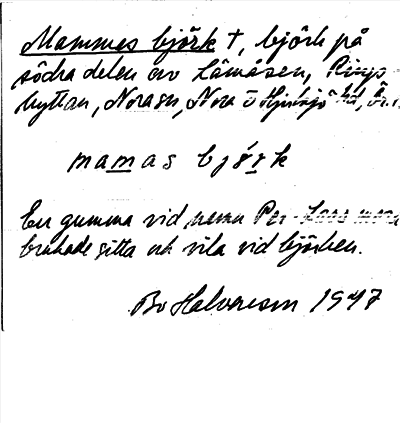 Mammas björk †, björk på
södra delen av Låmåsen, Rings-
hyttan, Norasn, Nora o Hjulsjö hd, Ör.
mamas björk
En gumma vid namn Per-Lars mora
brukade sitta och vila vid björken.
Bo Halvarson 1947